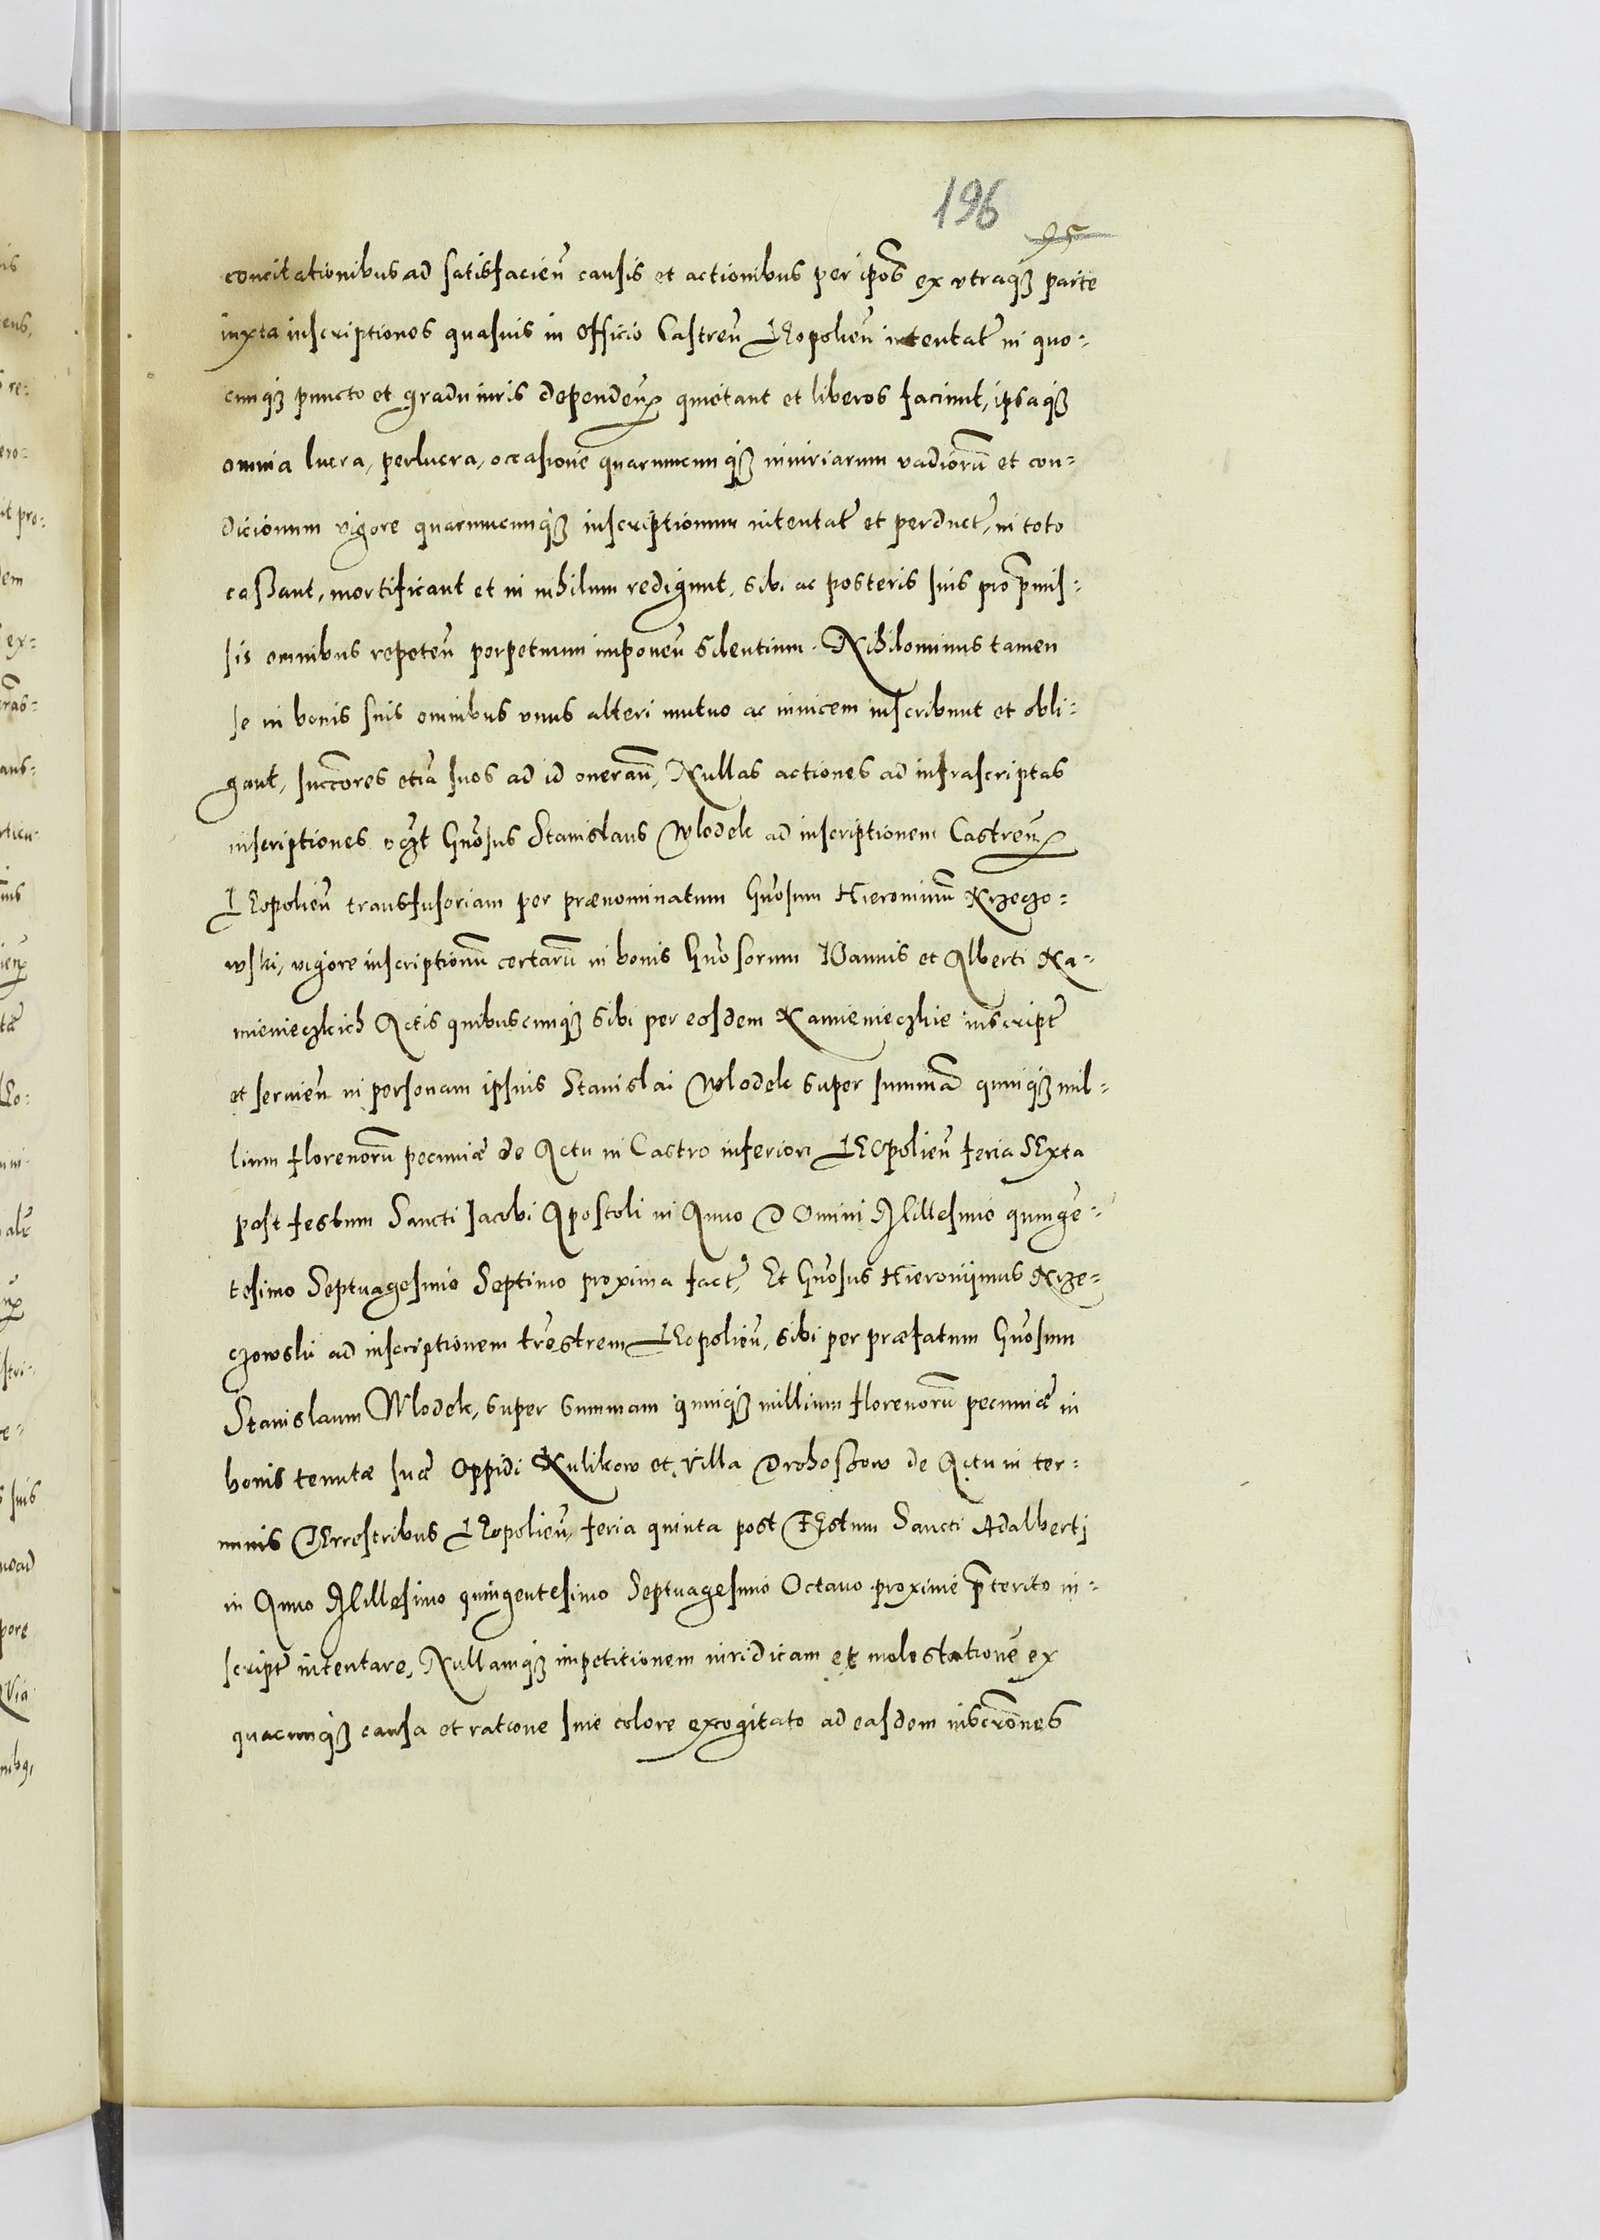 196
95
concitationibus ad satisfacień causis et actionibus per ipos ex vtraqз parte
iuxta inscriptiones quasuis in Officio Castreń LEopolień intentat̃ in quo-
cunqз puncto et gradu iuris dependeń quietant et liberos faciunt, ipsaqз
omnia lucra, perlucra, occasione quarumcunqз iniuriarum vadiorũ et con-
dicionum vigore quarumcunqз inscriptionum intentat̃ et perduct̃, in toto
cassant, mortificant et in nihilum redigunt, sibi ac posteris suis pro p̃mis-
sis omnibus repeteń perpetuum imponeń silentium. Nihilominus tamen
se in bonis suis omnibus vnus alteri mutuo ac inuicem inscribunt et obli-
gant, succ̃ores etiã suos ad id onerań, Nullas actiones ad infrascriptas
inscriptiones vczt Gńosus Stanislaus Wlodek ad inscriptionem Castreń
LEopolień transfusoriam per prænominatum Gńosum Hieronimũ Krzeczo-
wski, vigore inscriptionũ certarũ in bonis Gńosorum IOannis et Alberti Ka-
mienieczkich Actis quibuscunqз sibi per eosdem Kamienieczkie inscript̃
et seruień in personam ipsius Stanislai Wlodek super summã quinqз mil-
lium florenorũ pecuniæ de Actu in Castro inferiori LEOpolień feria SExta
post festum Sancti Iacobi Apostoli in Anno DOmini Millesimo quinge-
tesimo Septuagesimo Septimo proxima fact̃, Et Gńosus Hieronijmus Krze-
czowski ad inscriptionem tr̃estrem LEopolień, sibi per præfatum Gńosum
Stanislaum Wlodek, super summam quinqз millium florenorũ pecuniæ in
bonis tenutæ suæ Oppidi Kulikow et Villa Drohoszow de Actu in ter-
minis TErrestribus LEopolień, feria quinta post FEstum Sancti Adalberti
in Anno Millesimo quingentesimo Septuagesimo Octauo proxime p̃terito in-
script̃ intentare, Nullamqз impetitionem iuridicam et molestationẽ ex
quacunqз causa et ratione siue colore excogitato ad easdem inscr̃ones